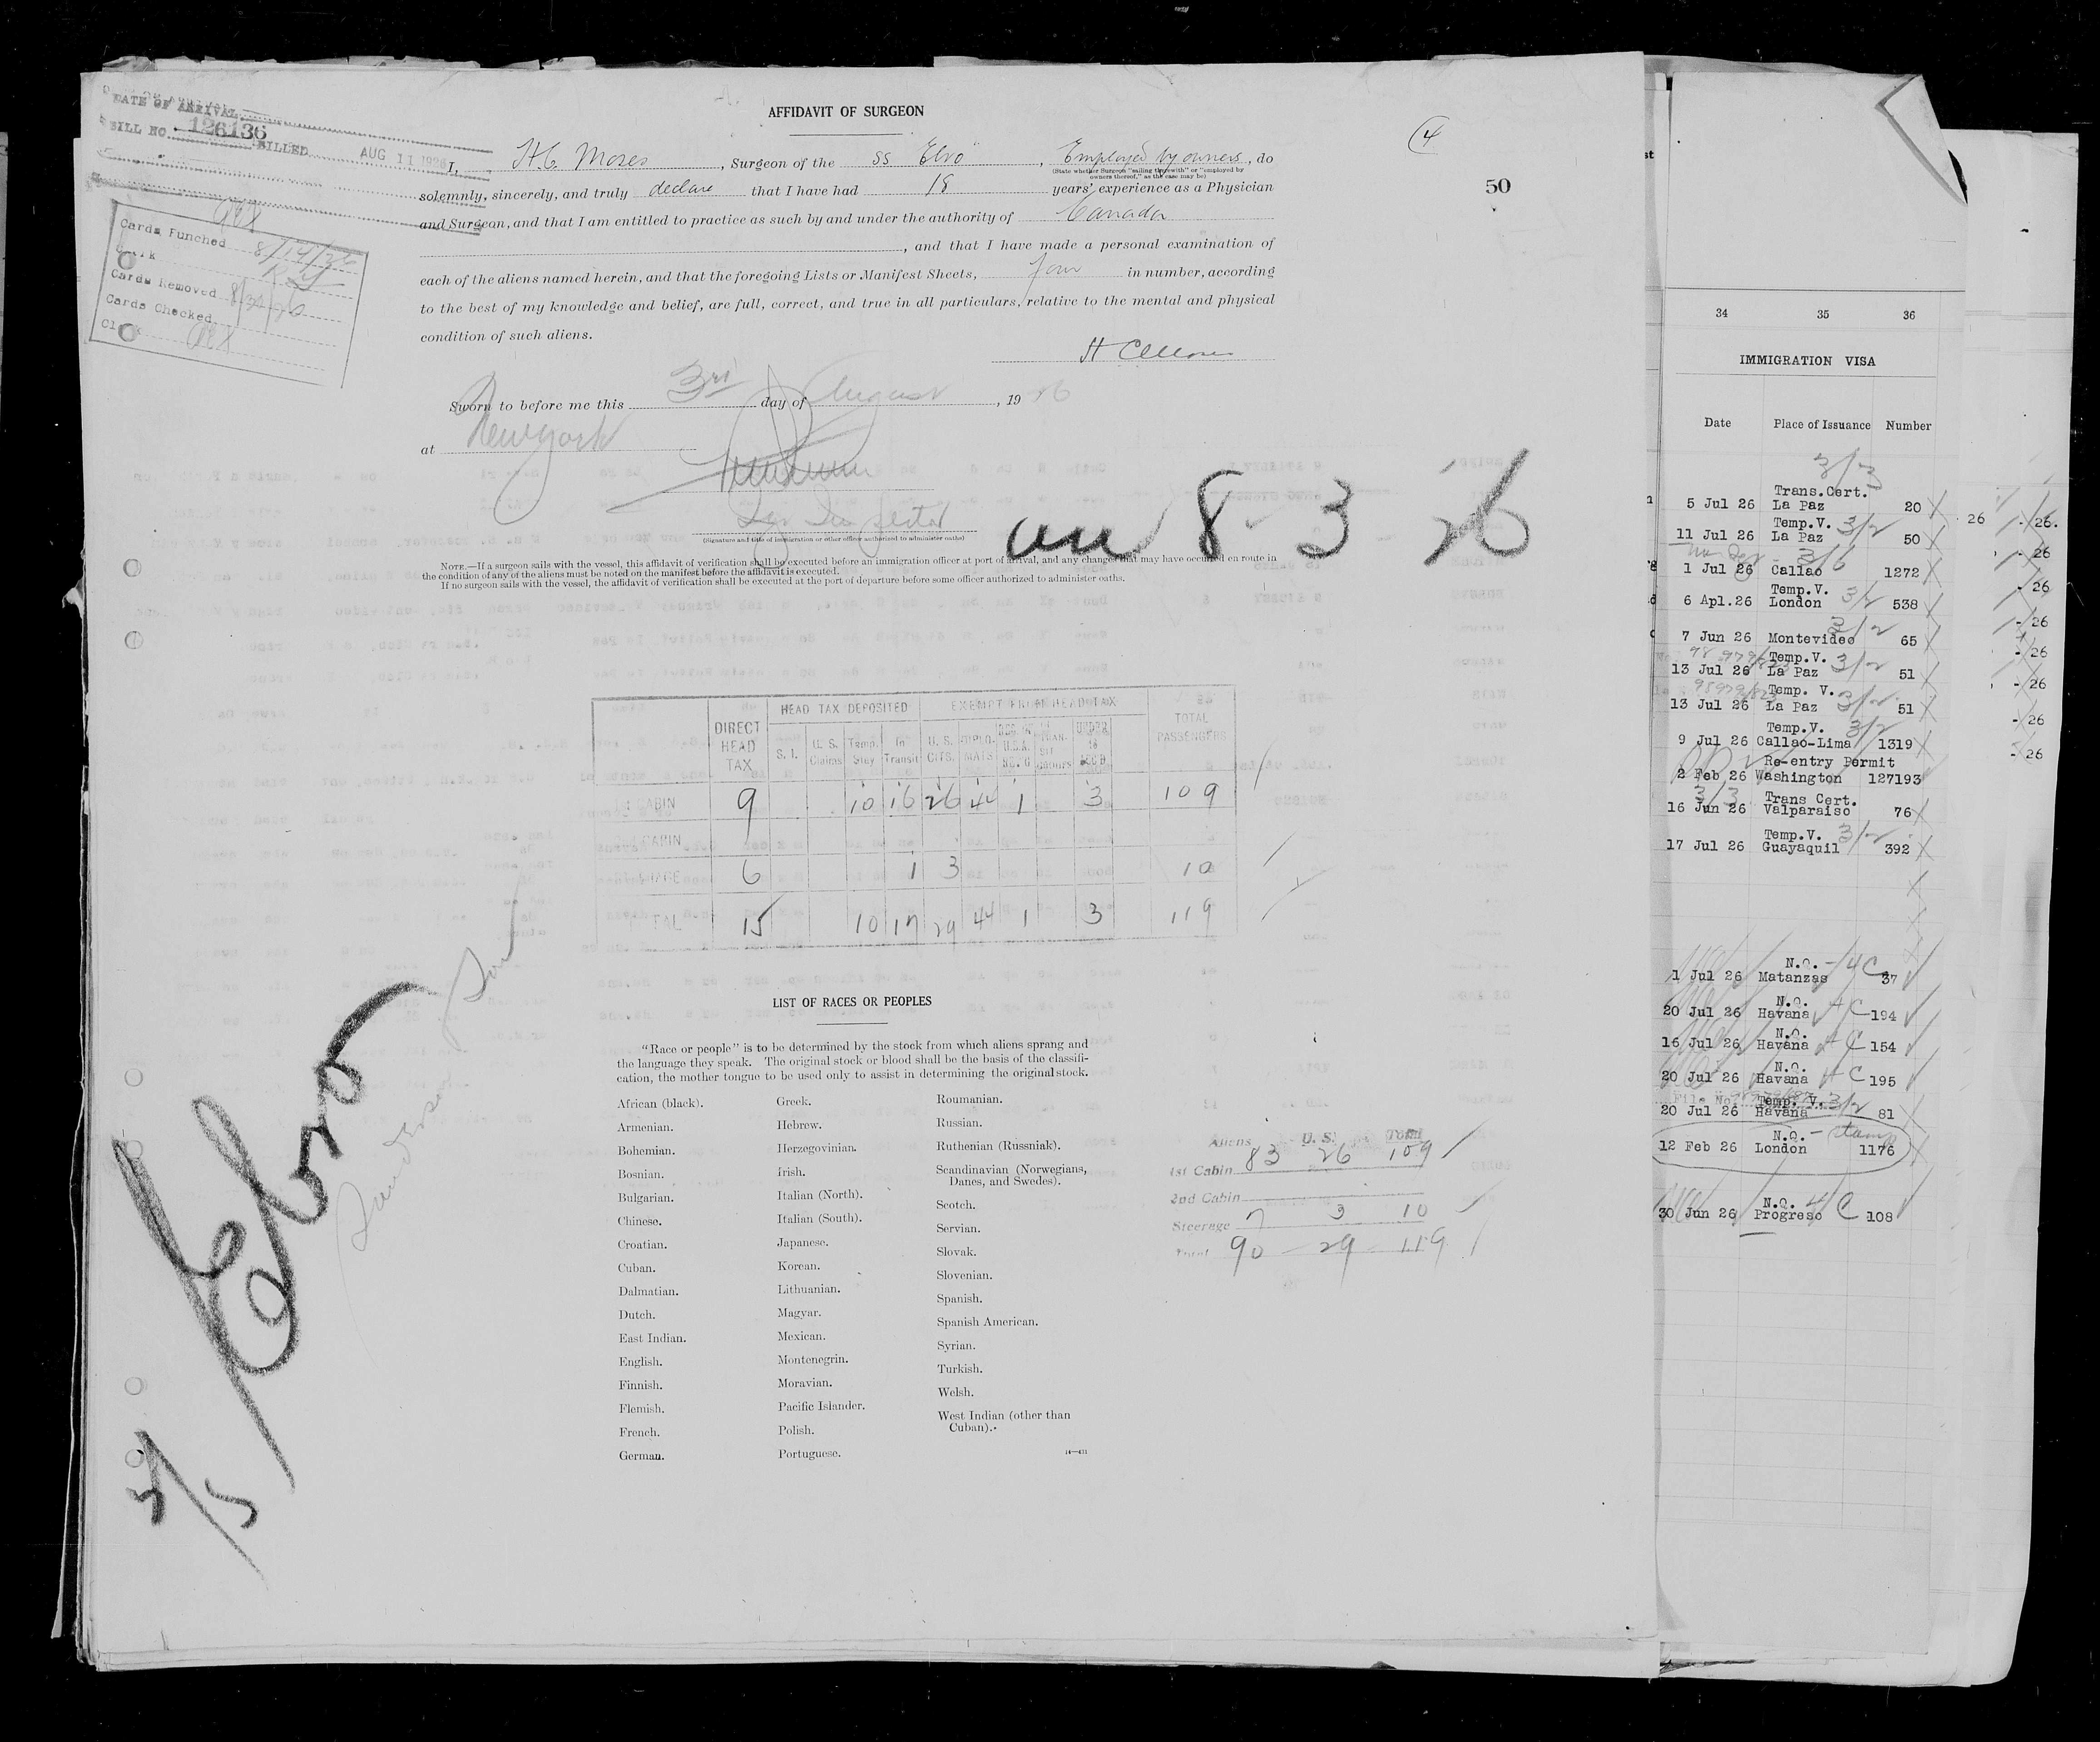 AFFIDAVIT OF SURGEON
DATE OF ARRIVAL
BILL NO. 126136
BILLED AUG 11 1926
Cards Punched 8/14/26
Cards Removed
Cards Checked
4
50
I, H C Moses, Surgeon of the SS Ebro, Employed by owners, do
(State whether Surgeon "sailing therewith" or "employed by
owners thereof," as the case may be)
solemnly, sincerely, and truly declare that I have had 18 years' experience as a Physician
and Surgeon, and that I am entitled to practice as such by and under the authority of Canada
, and that I have made a personal examination of
each of the aliens named herein, and that the foregoing Lists or Manifest Sheets, four in number, according
to the best of my knowledge and belief, are full, correct, and true in all particulars, relative to the mental and physical
condition of such aliens.
H C Moses
Sworn to before me this 3rd day of August, 19 26
at New York
(Signature and title of immigration or other officer authorized to administer oaths)
8 3 26
NOTE.—If a surgeon sails with the vessel, this affidavit of verification shall be executed before an immigration officer at port of arrival, and any changes that may have occurred en route in
the condition of any of the aliens must be noted on the manifest before the affidavit is executed.
If no surgeon sails with the vessel, the affidavit of verification shall be executed at the port of departure before some officer authorized to administer oaths.
DIRECT HEAD TAX
HEAD TAX DEPOSITED
EXEMPT FROM HEAD TAX
TOTAL PASSENGERS
S. I. U. S. Claims Temp. Stay In Transit U. S. CITS. DIPLOMATS
CABIN 9 10 16 26 44 1 3 109
CABIN
6 1 3 10
TOTAL 15 10 17 29 44 1 3 119
LIST OF RACES OR PEOPLES
"Race or people" is to be determined by the stock from which aliens sprang and
the language they speak. The original stock or blood shall be the basis of the classifi-
cation, the mother tongue to be used only to assist in determining the original stock.
African (black).
Armenian.
Bohemian.
Bosnian.
Bulgarian.
Chinese.
Croatian.
Cuban.
Dalmatian.
Dutch.
East Indian.
English.
Finnish.
Flemish.
French.
German.
Greek.
Hebrew.
Herzegovinian.
Irish.
Italian (North).
Italian (South).
Japanese.
Korean.
Lithuanian.
Magyar.
Mexican.
Montenegrin.
Moravian.
Pacific Islander.
Polish.
Portuguese.
Roumanian.
Russian.
Ruthenian (Russniak).
Scandinavian (Norwegians,
Danes, and Swedes).
Scotch.
Servian.
Slovak.
Slovenian.
Spanish.
Spanish American.
Syrian.
Turkish.
Welsh.
West Indian (other than
Cuban).
Aliens U. S. Total
1st Cabin 83 26 109
2nd Cabin
Steerage 7 3 10
Total 90 29 119
Ebro
Sanderson & Son
34 35 36
IMMIGRATION VISA
Date Place of Issuance Number
3/3
Trans.Cert.
5 Jul 26 La Paz 20
Temp.V. 3/2
11 Jul 26 La Paz 50
3/6
1 Jul 26 Callao 1272
Temp.V. 3/2
6 Apl.26 London 538
3/2
7 Jun 26 Montevideo 65
Temp.V. 3/2
13 Jul 26 La Paz 51
Temp. V. 3/2
13 Jul 26 La Paz 51
Temp.V. 3/2
9 Jul 26 Callao-Lima 1319
Re-entry Permit
2 Feb 26 Washington 127193
3/3 Trans Cert.
16 Jun 26 Valparaiso 76
Temp.V. 3/2
17 Jul 26 Guayaquil 392
N.Q. - 4 C
1 Jul 26 Matanzas 37
N.Q. 4 C
20 Jul 26 Havana 194
N.Q. 4 C
16 Jul 26 Havana 154
N.Q. 4 C
20 Jul 26 Havana 195
File No. Temp. V. 3/2
20 Jul 26 Havana 81
N.Q. - stamp
12 Feb 26 London 1176
N.Q. 4 C
30 Jun 26 Progreso 108